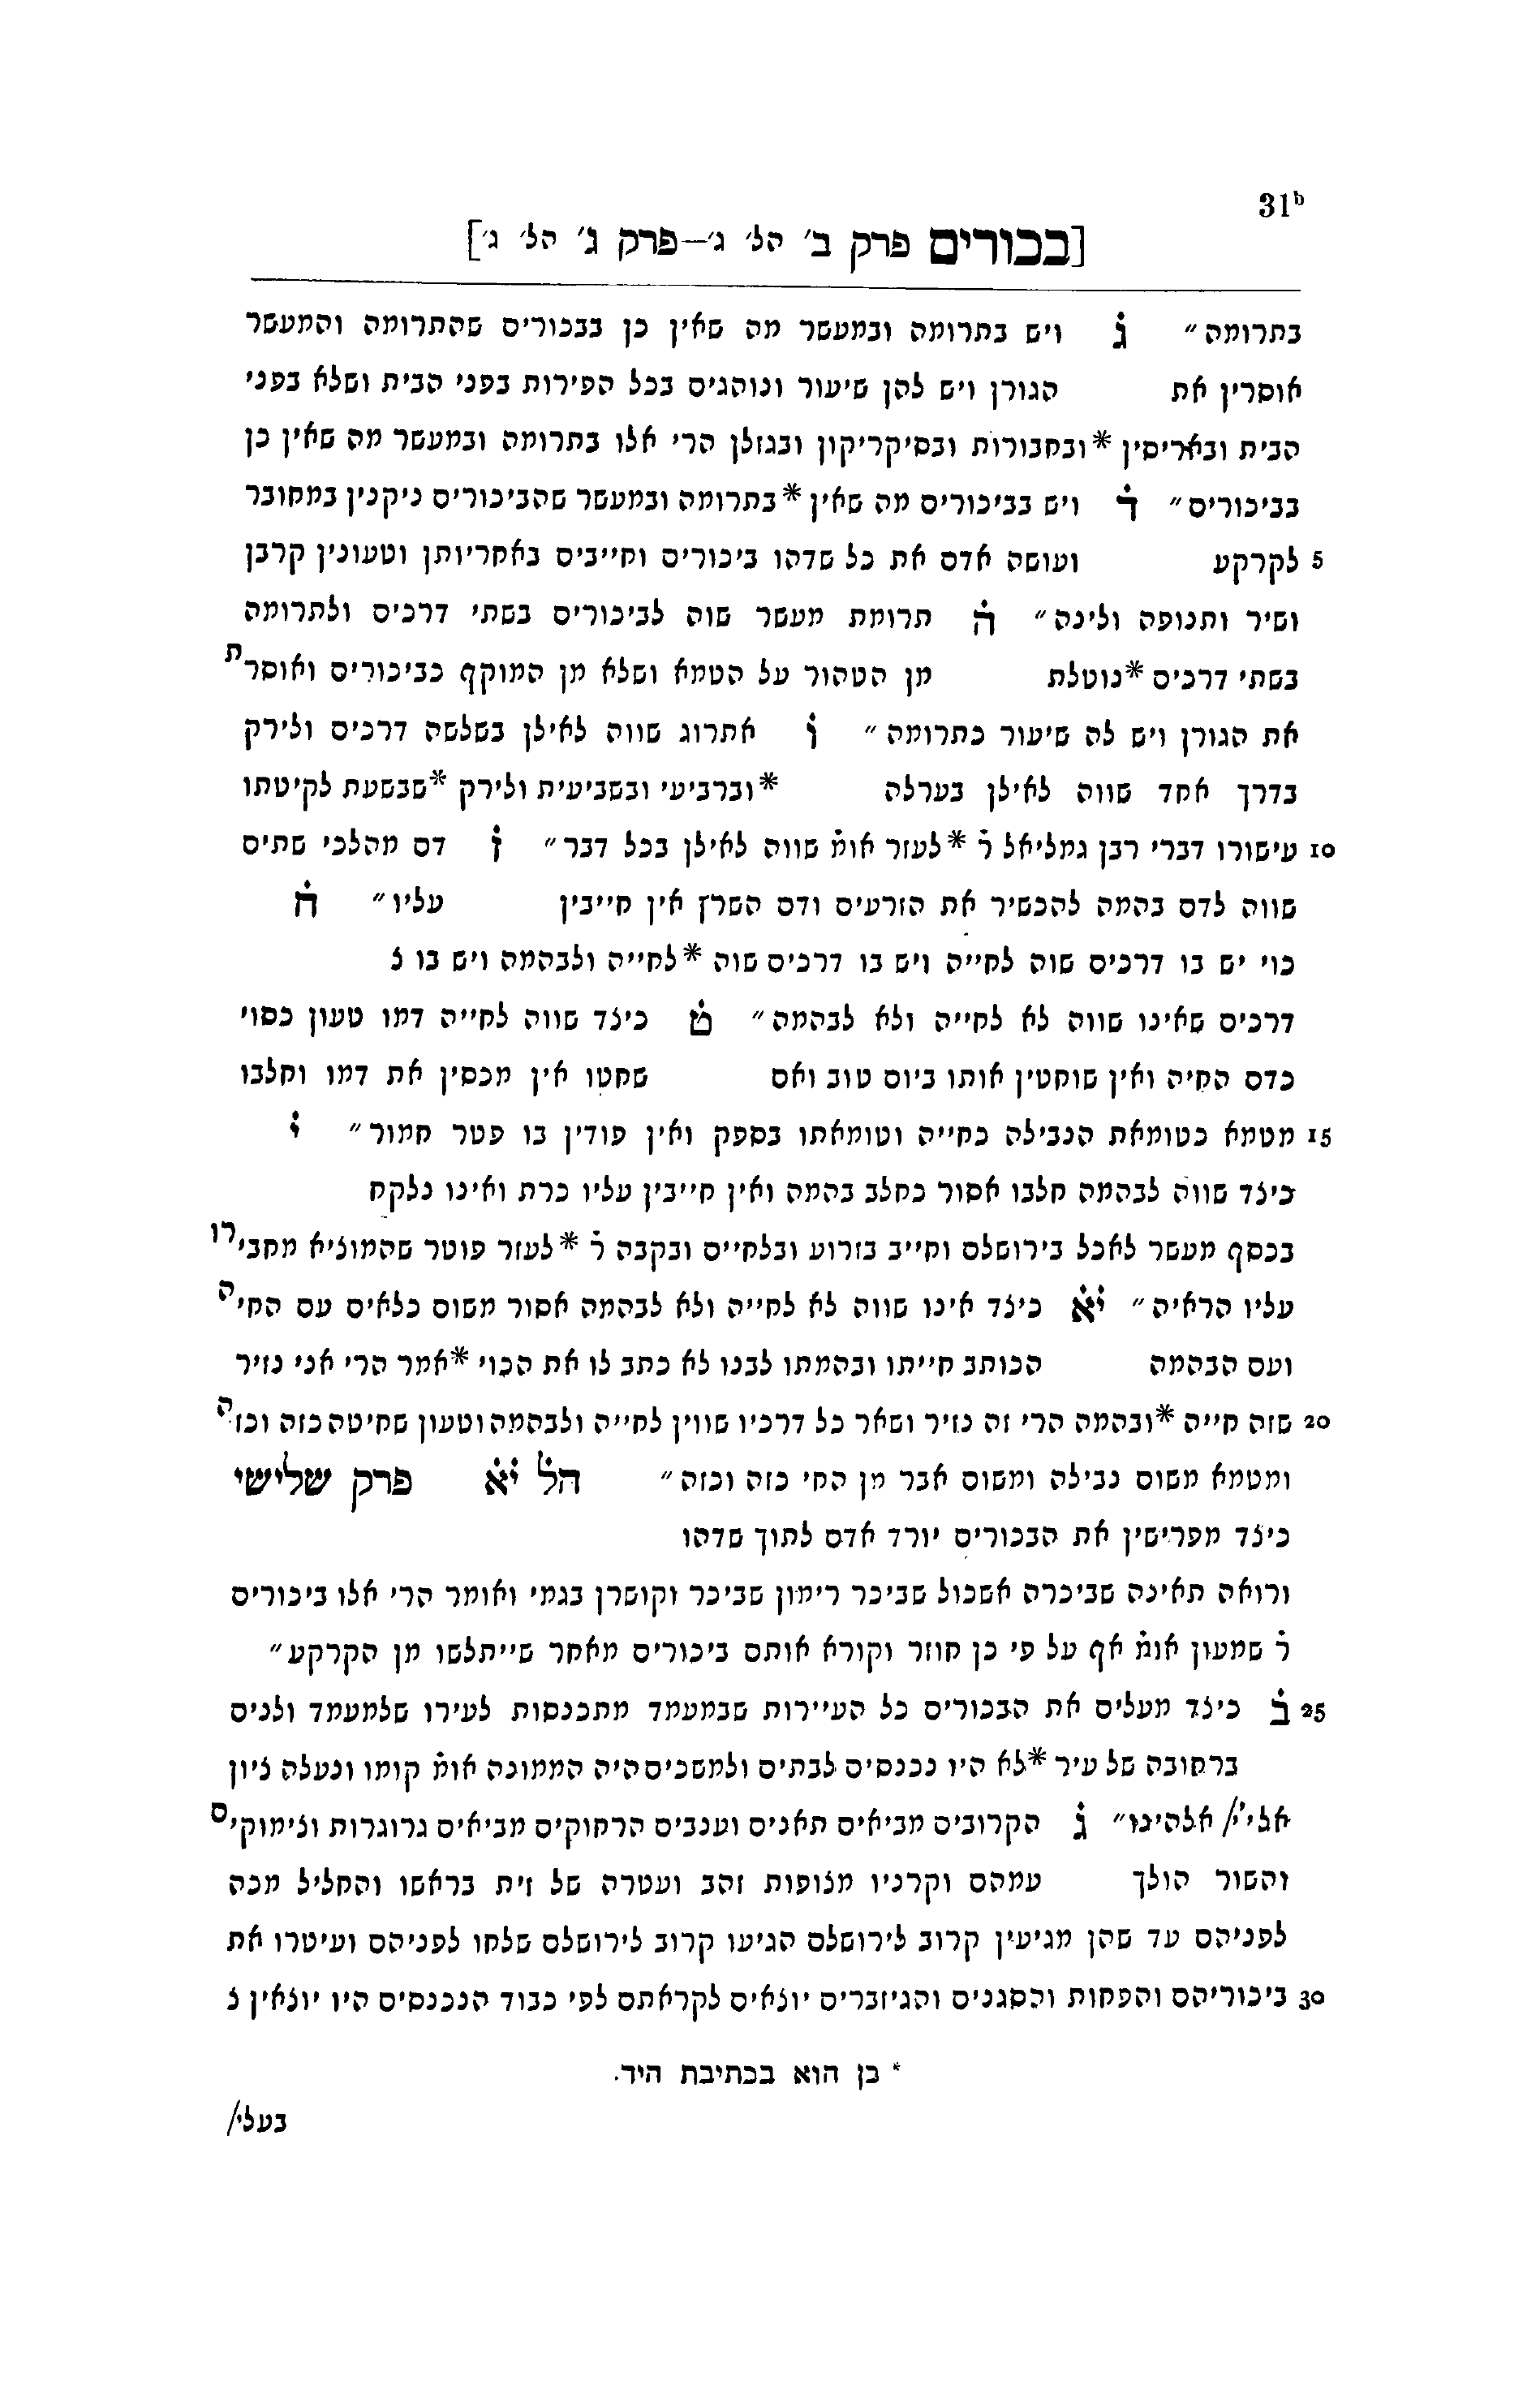 31b
[בכורים פרק ב׳ הל׳ ג׳—פרק ג׳ הל׳ ג׳]
בתרומה״ ג̇ ויש בתרומה ובמעשר מה שאין כן בבכורים שהתרומה והמעשר
אוסרין את הגורן ויש להן שיעור ונוהגים בכל הפירות בפני הבית ושלא בפני
הבית ובאריסין *ובחבורות ובסיקריקון ובגזלן הרי אלו בתרומה ובמעשר מה שאין כן
בביכורים״ ד̇ ויש בביכורים מה שאין *בתרומה ובמעשר שהביכורים ניקנין במחובר
5 לקרקע ועושה אדם את כל שדהו ביכורים וחייבים באחריותן וטעונין קרבן
ושיר ותנופה ולינה״ ה̇ תרומת מעשר שוה לביכורים בשתי דרכים ולתרומה
בשתי דרכים *נוטלת מן הטהור על הטמא ושלא מן המוקף כביכורים ואוסרת
את הגורן ויש לה שיעור כתרומה״ ו̇ אתרוג שווה לאילן בשלשה דרכים ולירק
בדרך אחד שווה לאילן בערלה *וברביעי ובשביעית ולירק *שבשעת לקיטתו
10 עישורו דברי רבן גמליאל ר̇ *לעזר אומ̇ שווה לאילן בכל דבר״ ז̇ דם מהלכי שתים
שווה לדם בהמה להכשיר את הזרעים ודם השרץ אין חייבין עליו״ ח̇
כוי יש בו דרכים שוה לחייה ויש בו דרכים שוה *לחייה ולבהמה ויש בו צ
דרכים שאינו שווה לא לחייה ולא לבהמה״ ט̇ כיצד שווה לחייה דמו טעון כסוי
כדם החיה ואין שוחטין אותו ביום טוב ואם שחטו אין מכסין את דמו וחלבו
15 מטמא כטומאת הנבילה כחייה וטומאתו בספק ואין פודין בו פטר חמור״ י̇
כיצד שווה לבהמה חלבו אסור כחלב בהמה ואין חייבין עליו כרת ואינו נלקח
בכסף מעשר לאכל בירושלם וחייב בזרוע ובלחיים ובקבה ר̇ *לעזר פוטר שהמוציא מחבירו
עליו הראיה״ י̇א̇ כיצד אינו שווה לא לחייה ולא לבהמה אסור משום כלאים עם החיה
ועם הבהמה הכותב חייתו ובהמתו לבנו לא כתב לו את הכוי *אמר הרי אני נזיר
20 שזה חייה *ובהמה הרי זה נזיר ושאר כל דרכיו שווין לחייה ולבהמה וטעון שחיטה כזה וכזה
ומטמא משום נבילה ומשום אבר מן החי כזה וכזה״ הל̇ י̇א̇ פרק שלישי
כיצד מפרישין את הבכורים יורד אדם לתוך שדהו
ורואה תאינה שביכרה אשכול שביכר רימון שביכר וקושרן בגמי ואומר הרי אלו ביכורים
ר̇ שמעון אומ̇ אף על פי כן חוזר וקורא אותם ביכורים מאחר שייתלשו מן הקרקע״
25 ב̇ כיצד מעלים את הבכורים כל העיירות שבמעמד מתכנסות לעירו שלמעמד ולנים
ברחובה של עיר *לא היו נכנסים לבתים ולמשכים היה הממונה אומ̇ קומו ונעלה ציון
אלי׳/ אלהינו״ ג̇ הקרובים מביאים תאנים וענבים הרחוקים מביאים גרוגרות וצימוקים
והשור הולך עמהם וקרניו מצופות זהב ועטרה של זית בראשו והחליל מכה
לפניהם עד שהן מגיעין קרוב לירושלם הגיעו קרוב לירושלם שלחו לפניהם ועיטרו את
30 ביכוריהם והפחות והסגנים והגיזברים יוצאים לקראתם לפי כבוד הנכנסים היו יוצאין צ
* כן הוא בכתיבת היד.
בעלי/